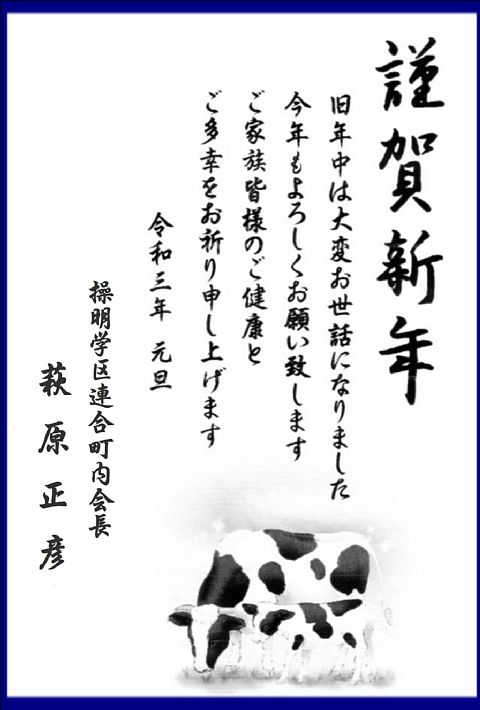 謹賀新年
旧年中は大変お世話になりました
今年もよろしくお願い致します
ご家族皆様のご健康と
ご多幸をお祈り申し上げます
令和三年 元旦
操明学区連合町内会長
萩原正彦